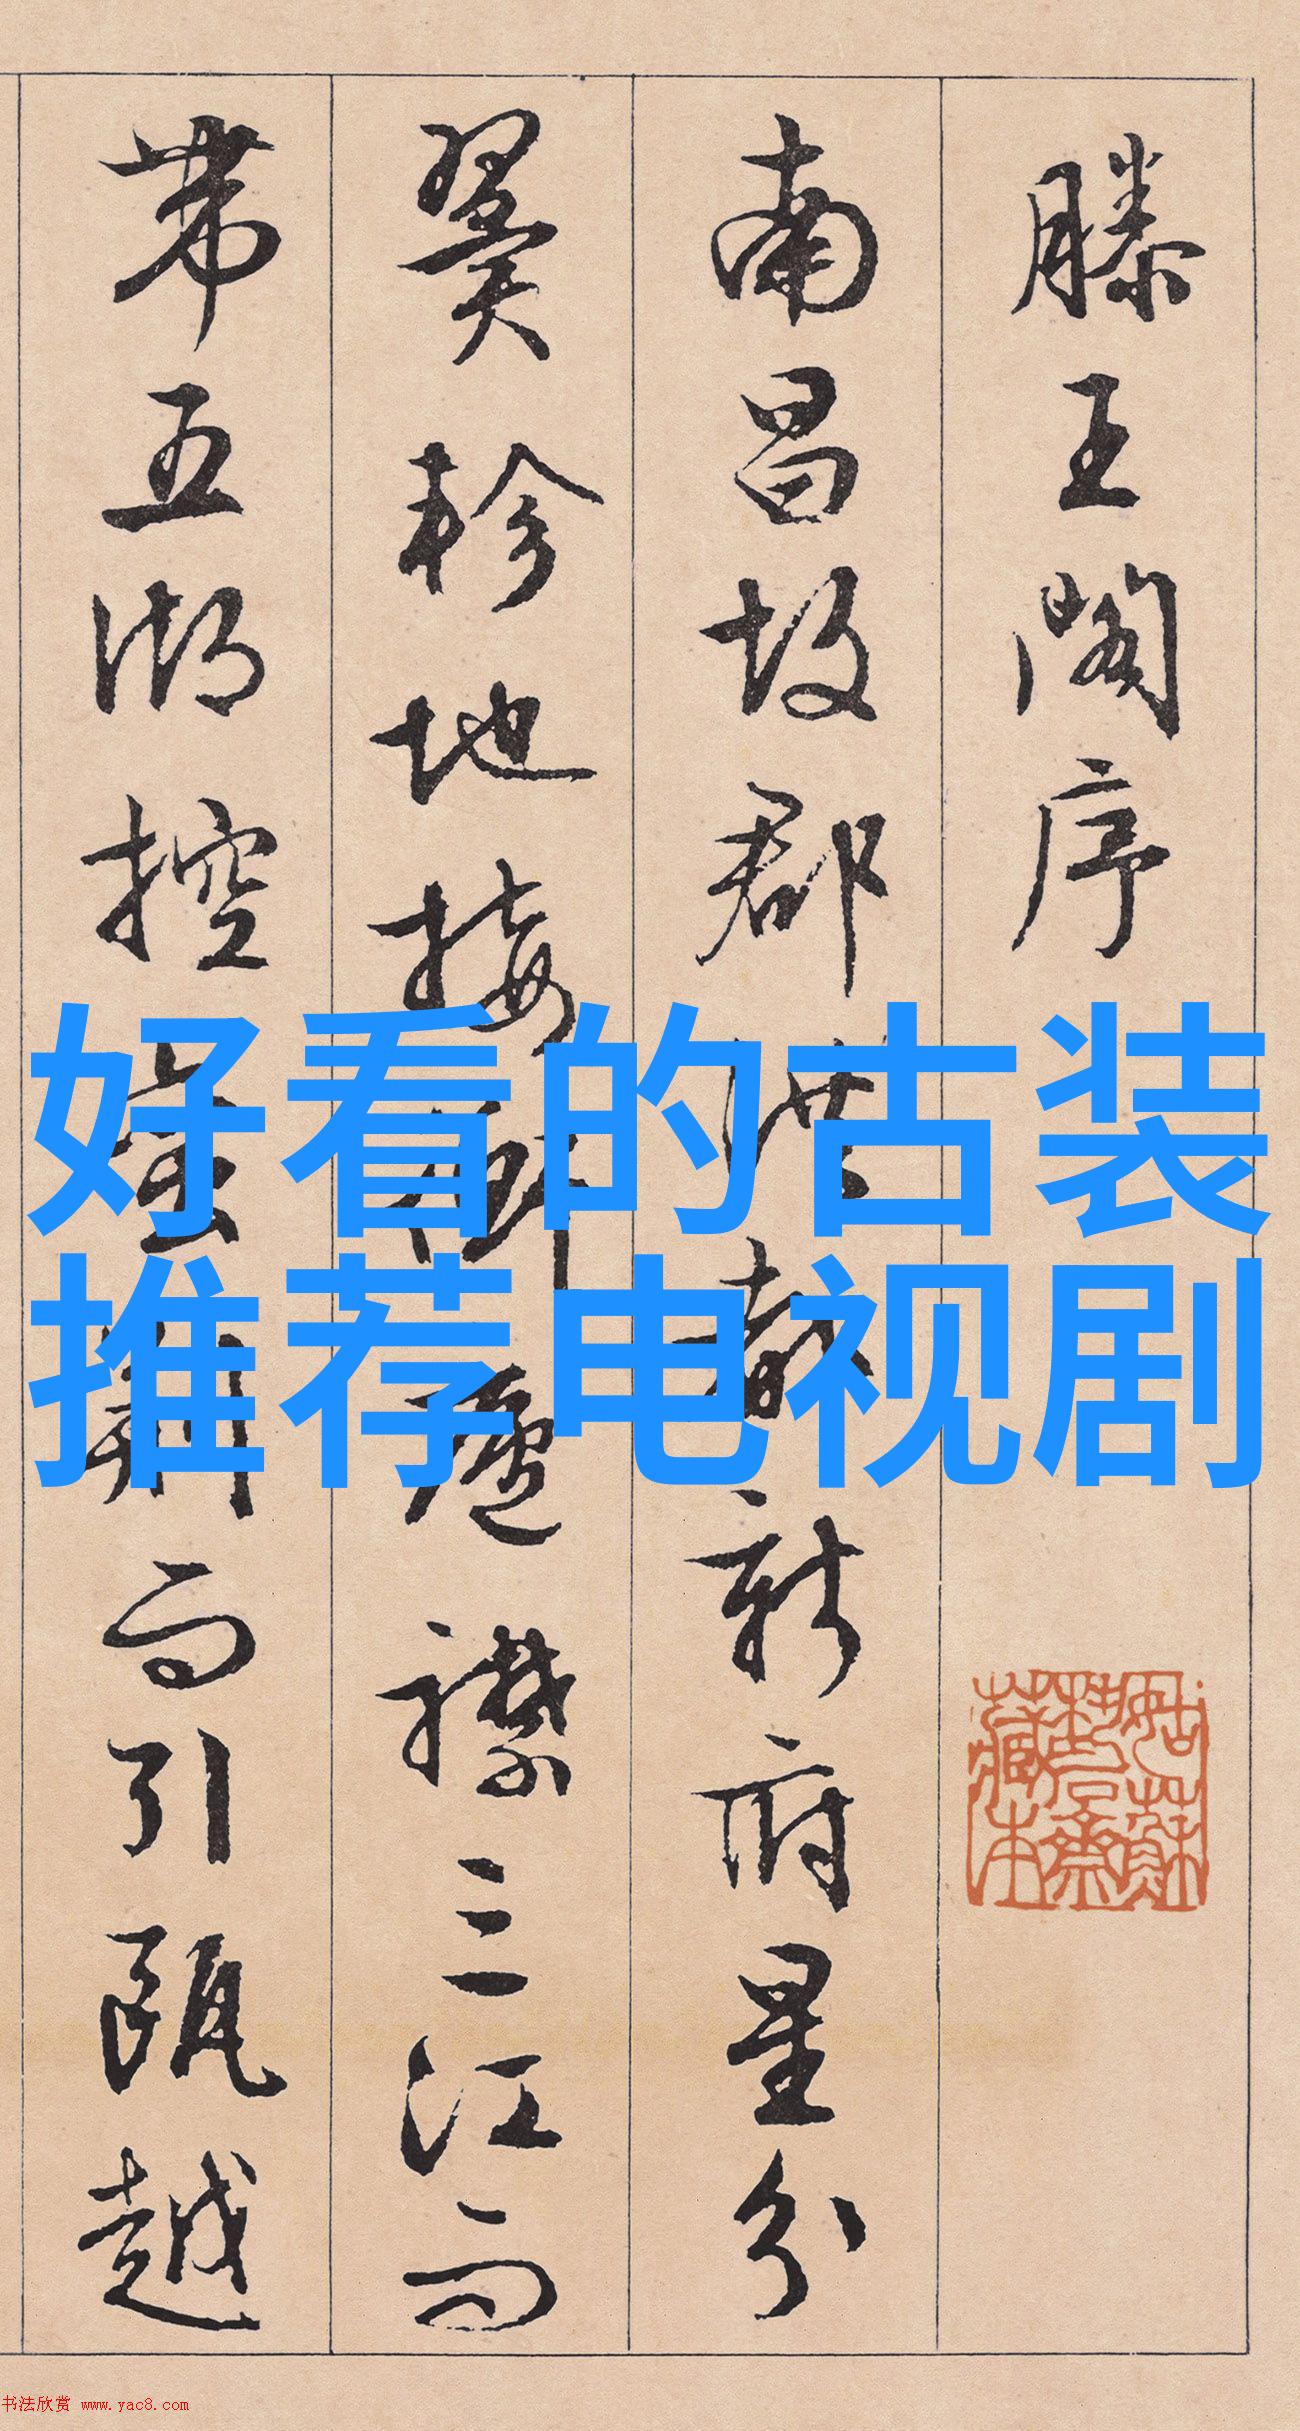 滕王閣序
南昌故郡洪都新府星分
翼軫地接衡廬襟三江而
帶五湖控蠻荊而引甌越
好看的古装
推荐电视剧
书法欣赏 www.yac8.com